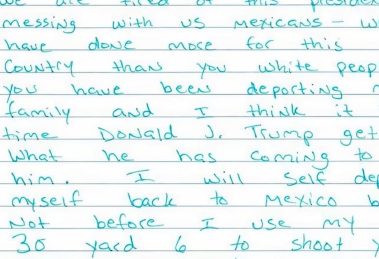 we are tired of this
messing with us mexicans —
have done more for this
Country than you white
you have been deporting
family and I think it
time Donald J. Trump get
What he has coming to
him. I will self
myself back to Mexico
Not before I use my
30 yard 6 to shoot